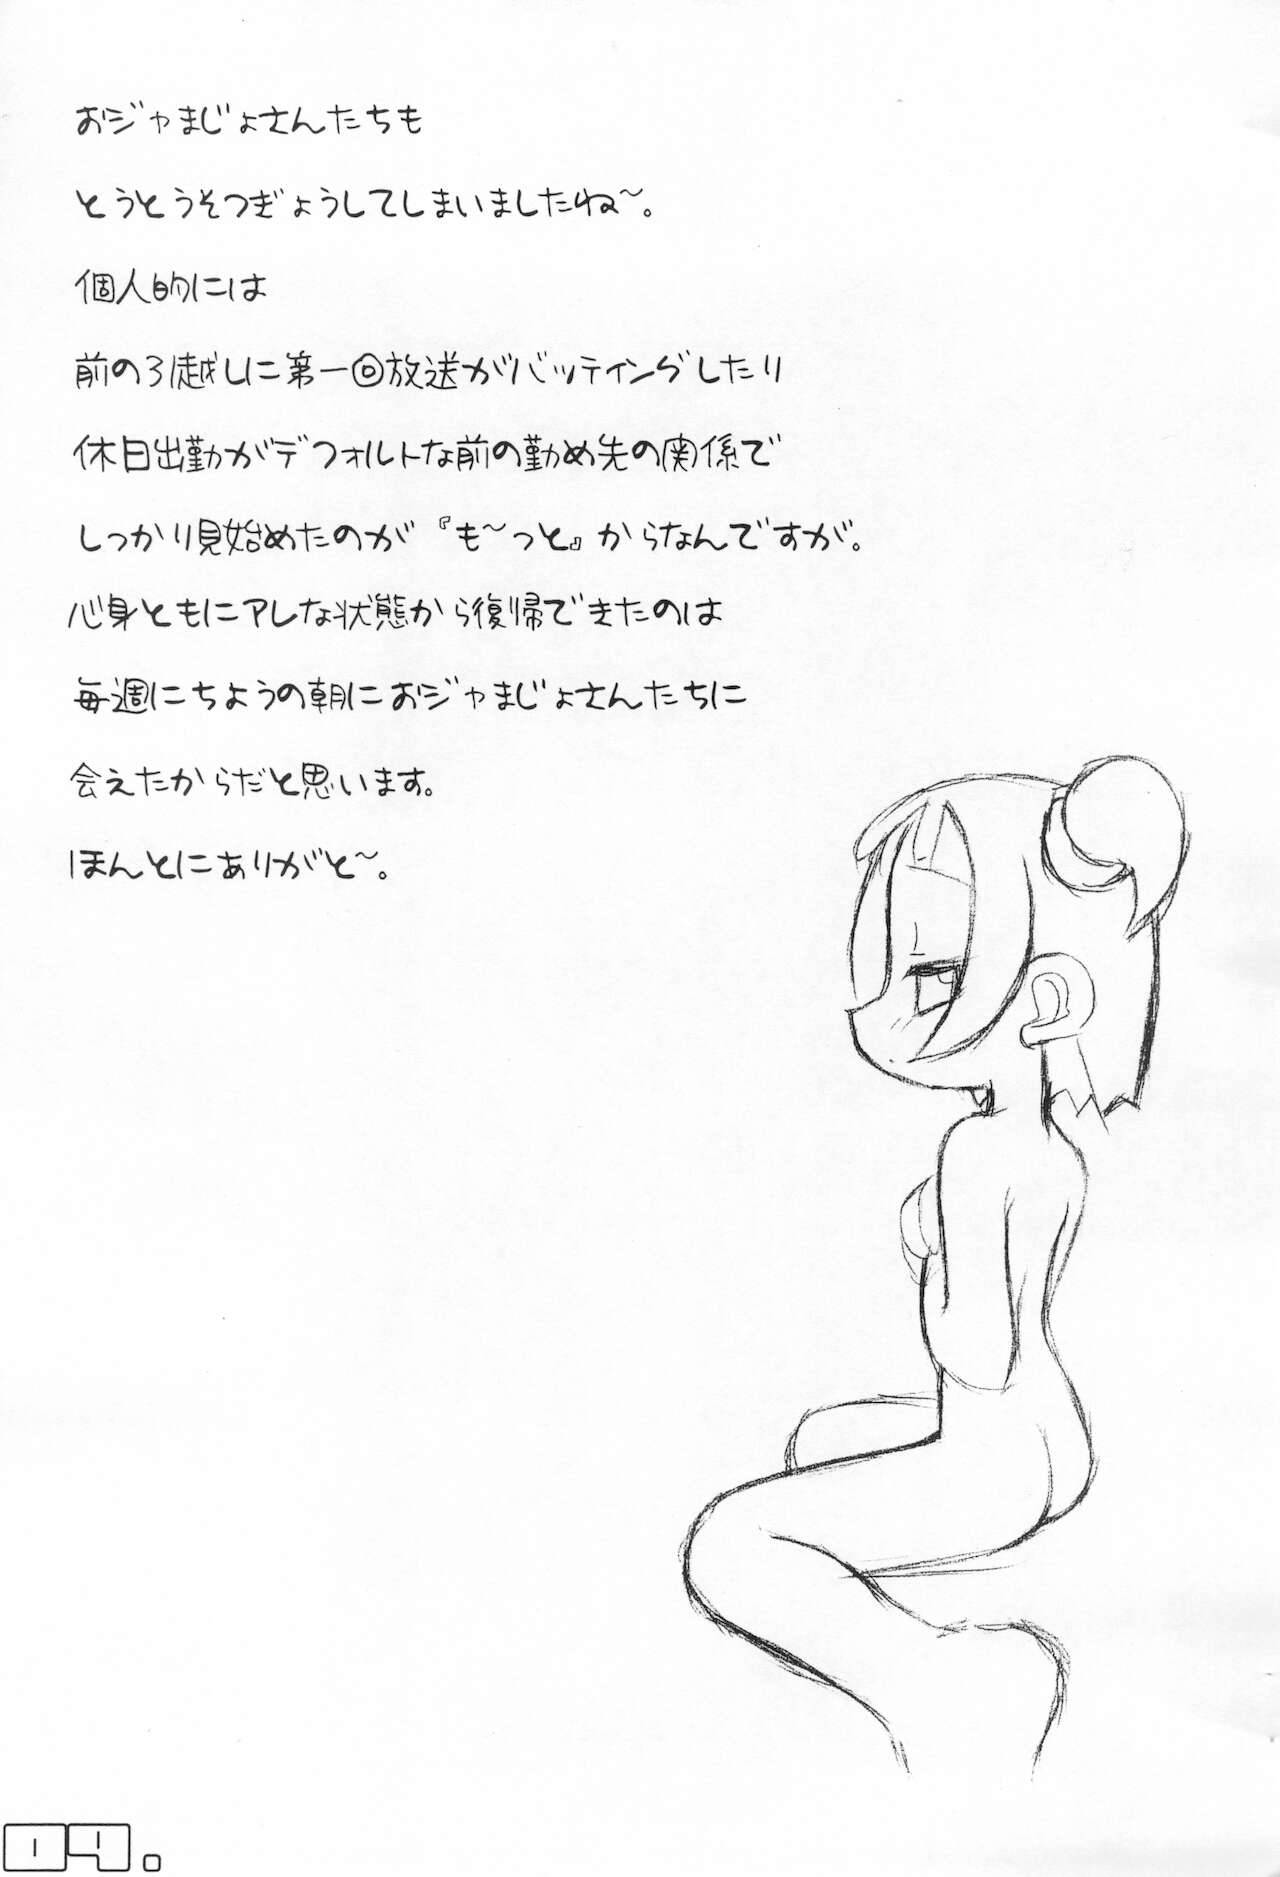 おジャまじょさんたちも
とうとうそつぎょうしてしまいましたね～。
個人的には
前の引越しに第一回放送がバッティングしたり
休日出勤がデフォルトな前の勤め先の関係で
しっかり見始めたのが『も～っと』からなんですが。
心身ともにアレな状態から復帰できたのは
毎週にちようの朝におジャまじょさんたちに
会えたからだと思います。
ほんとにありがと～。
04.